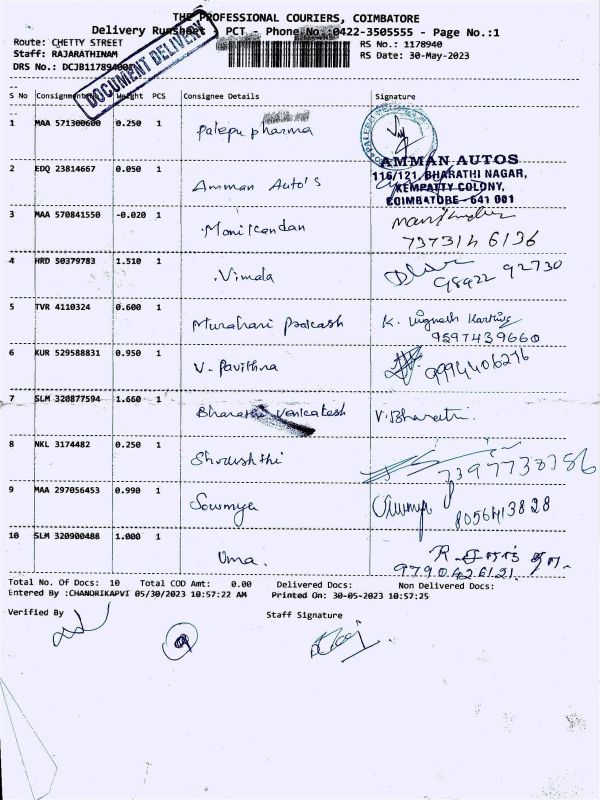 THE PROFESSIONAL COURIERS, COIMBATORE
Delivery Runsheet PCT - Phone No.:0422-3505555 - Page No.:1
Route: CHETTY STREET RS No.: 1178940
Staff: RAJARATHINAM RS Date: 30-May-2023
DRS No.: DCJB1178940
DOCUMENT DELIVERY
S No Consignment Weight PCS Consignee Details Signature
1 MAA 571300600 0.250 1 Palepu pharma
2 EDQ 23814667 0.050 1 Amman Auto's
AMMAN AUTOS
116/121, BHARATHI NAGAR,
KEMPATTY COLONY,
COIMBATORE - 641 001
3 MAA 570841550 -0.020 1 Manikandan Manikandan
7373146136
4 HRD 50379783 1.510 1 Vimala
98922 92730
5 TVR 4110324 0.600 1 Murahari K. Vignesh Karthik
9597439660
6 KUR 529588831 0.950 1 V. Pavithra 9994406276
7 SLM 320877594 1.660 1 Bharathi Venkatesh V. Bharathi
8 NKL 3174482 0.250 1 Shrushthi 7397738786
9 MAA 297056453 0.990 1 Sowmya Sowmya
8056413828
10 SLM 320900488 1.000 1 Uma.
9790426121.
Total No. Of Docs: 10 Total COD Amt: 0.00 Delivered Docs: Non Delivered Docs:
Entered By :CHANDRIKAPVI 05/30/2023 10:57:22 AM Printed On: 30-05-2023 10:57:25
Verified By Staff Signature